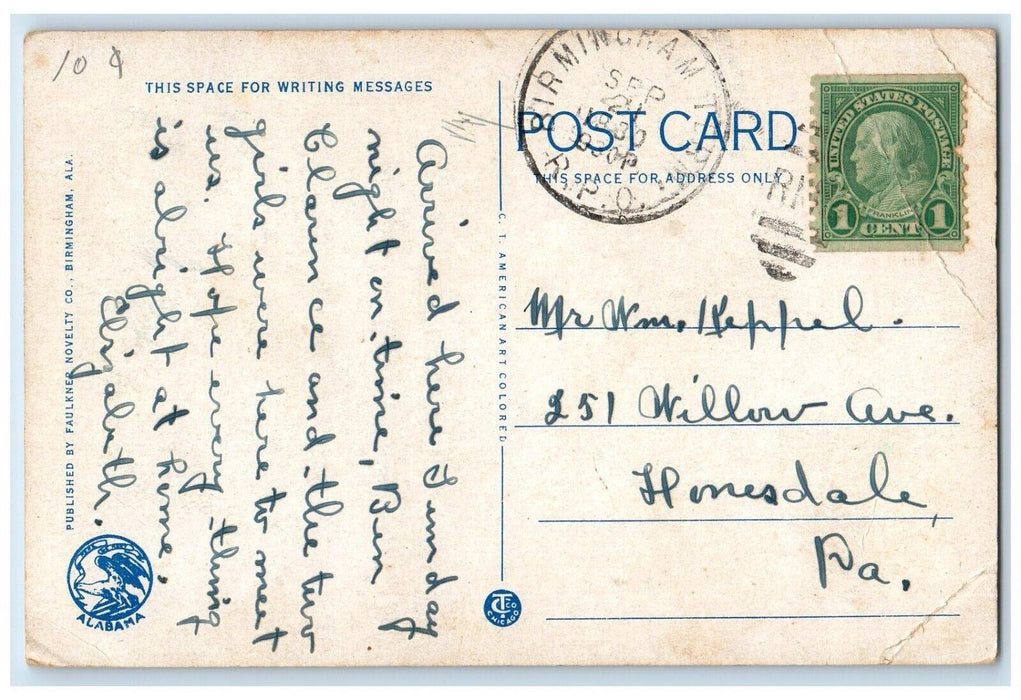 10 ¢
THIS SPACE FOR WRITING MESSAGES
Arived here Sunday
night on time, Ben
Clarence and the two
girls were here to meet
us. Hope every thing
is alright at home.
Elizabeth.
PUBLISHED BY FAULKNER NOVELTY CO., BIRMINGHAM, ALA.
ALABAMA
C. T. AMERICAN ART COLORED
C T CO
CHICAGO
POST CARD
THIS SPACE FOR ADDRESS ONLY
BIRMINGHAM
SEP
R.P.O.
UNITED STATES POSTAGE
FRANKLIN
1 CENT 1
Mr Wm. Keppel.
251 Willow Ave.
Honesdale,
Pa.